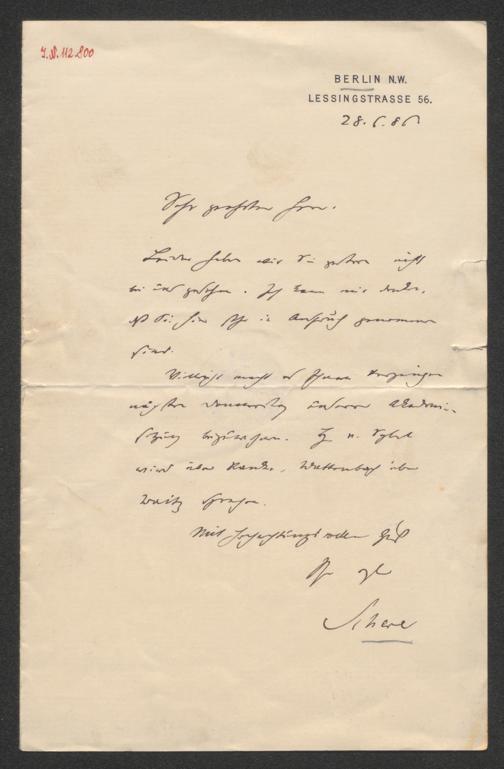 J.N. 112.800
BERLIN N.W.
LESSINGSTRASSE 56.
28.6.86
Sehr geehrter Herr.
Leider haben wir Sie gestern nicht
bei uns gesehen. Ich kann mir denken,
daß Sie hier sehr in Anspruch genommen
sind.
Vielleicht macht es Ihnen Vergnügen
nächsten Donnerstag unserer Akademie-
sitzung beizuwohnen. H. v. Sybel
wird über Ranke, Wattenbach über
Waitz sprechen.
Mit hochachtungsvollem Gruß
Ihr erg.
Scherer